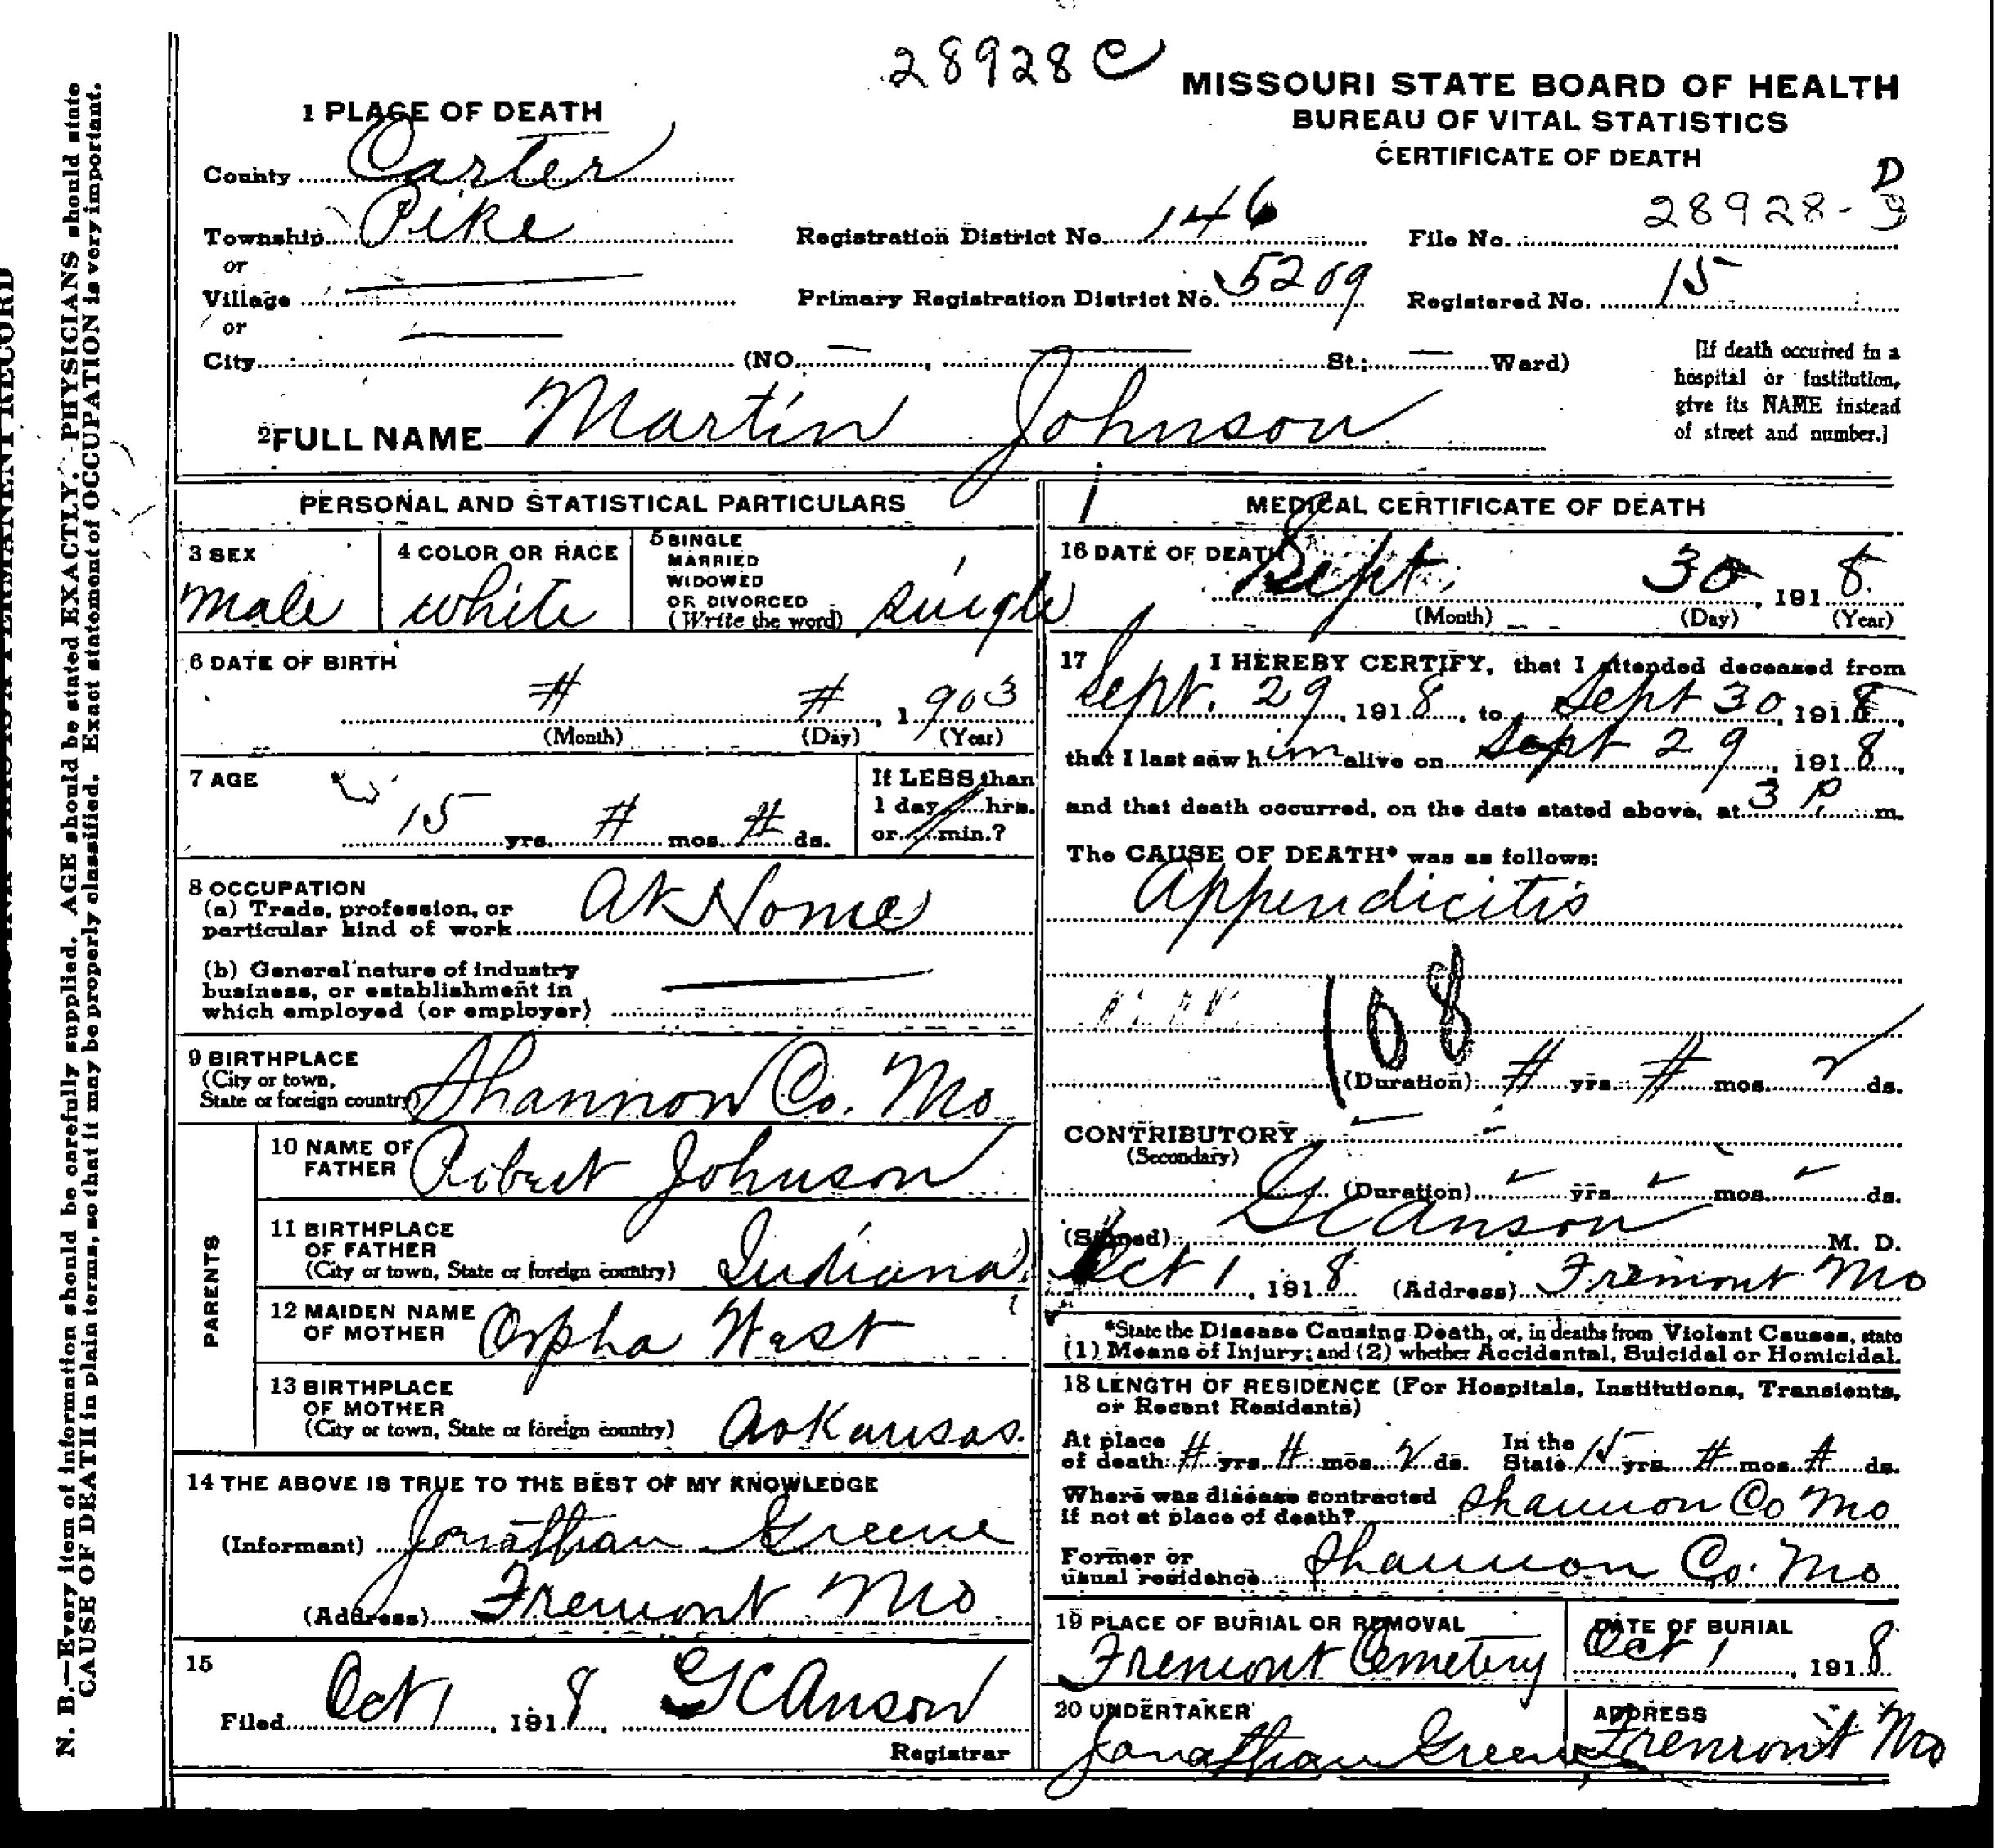 28928 C
MISSOURI STATE BOARD OF HEALTH
BUREAU OF VITAL STATISTICS
CERTIFICATE OF DEATH
1 PLACE OF DEATH
County Carter
Township Pike
or
Village
or
City (NO. , St.; Ward)
Registration District No. 146
File No. 28928-D
Primary Registration District No. 5209
Registered No. 15
[If death occurred in a
hospital or institution,
give its NAME instead
of street and number.]
2 FULL NAME Martin Johnson
PERSONAL AND STATISTICAL PARTICULARS
3 SEX
male
4 COLOR OR RACE
white
5 SINGLE
MARRIED
WIDOWED
OR DIVORCED
(Write the word) single
6 DATE OF BIRTH
# # , 1903
(Month) (Day) (Year)
7 AGE
15 yrs. # mos. # ds.
If LESS than
1 day, hrs.
or min.?
8 OCCUPATION
(a) Trade, profession, or
particular kind of work At Home
(b) General nature of industry
business, or establishment in
which employed (or employer)
9 BIRTHPLACE
(City or town,
State or foreign country) Shannon Co. Mo
PARENTS
10 NAME OF
FATHER Robert Johnson
11 BIRTHPLACE
OF FATHER
(City or town, State or foreign country) Indiana
12 MAIDEN NAME
OF MOTHER Orpha West
13 BIRTHPLACE
OF MOTHER
(City or town, State or foreign country) Arkansas.
14 THE ABOVE IS TRUE TO THE BEST OF MY KNOWLEDGE
(Informant) Jonathan Greene
(Address) Fremont Mo
15
Filed Oct 1, 1918, G C Anson
Registrar
MEDICAL CERTIFICATE OF DEATH
16 DATE OF DEATH
Sept. 30, 1918
(Month) (Day) (Year)
17 I HEREBY CERTIFY, that I attended deceased from
Sept. 29, 1918, to Sept 30, 1918,
that I last saw him alive on Sept 29, 1918,
and that death occurred, on the date stated above, at 3 P. m.
The CAUSE OF DEATH* was as follows:
Appendicitis
108
(Duration) # yrs. # mos. 2 ds.
CONTRIBUTORY
(Secondary)
(Duration) yrs. mos. ds.
(Signed) G C Anson M. D.
Oct 1, 1918 (Address) Fremont Mo
*State the Disease Causing Death, or, in deaths from Violent Causes, state
(1) Means of Injury; and (2) whether Accidental, Suicidal or Homicidal.
18 LENGTH OF RESIDENCE (For Hospitals, Institutions, Transients,
or Recent Residents)
At place
of death # yrs. # mos. 2 ds.
In the
State 15 yrs. # mos. # ds.
Where was disease contracted
if not at place of death? Shannon Co Mo
Former or
usual residence Shannon Co. Mo
19 PLACE OF BURIAL OR REMOVAL
Fremont Cemetery
DATE OF BURIAL
Oct 1, 1918
20 UNDERTAKER
Jonathan Greene
ADDRESS
Fremont Mo
N. B.—Every item of information should be carefully supplied. AGE should be stated EXACTLY. PHYSICIANS should state
CAUSE OF DEATH in plain terms, so that it may be properly classified. Exact statement of OCCUPATION is very important.
PERMANENT RECORD